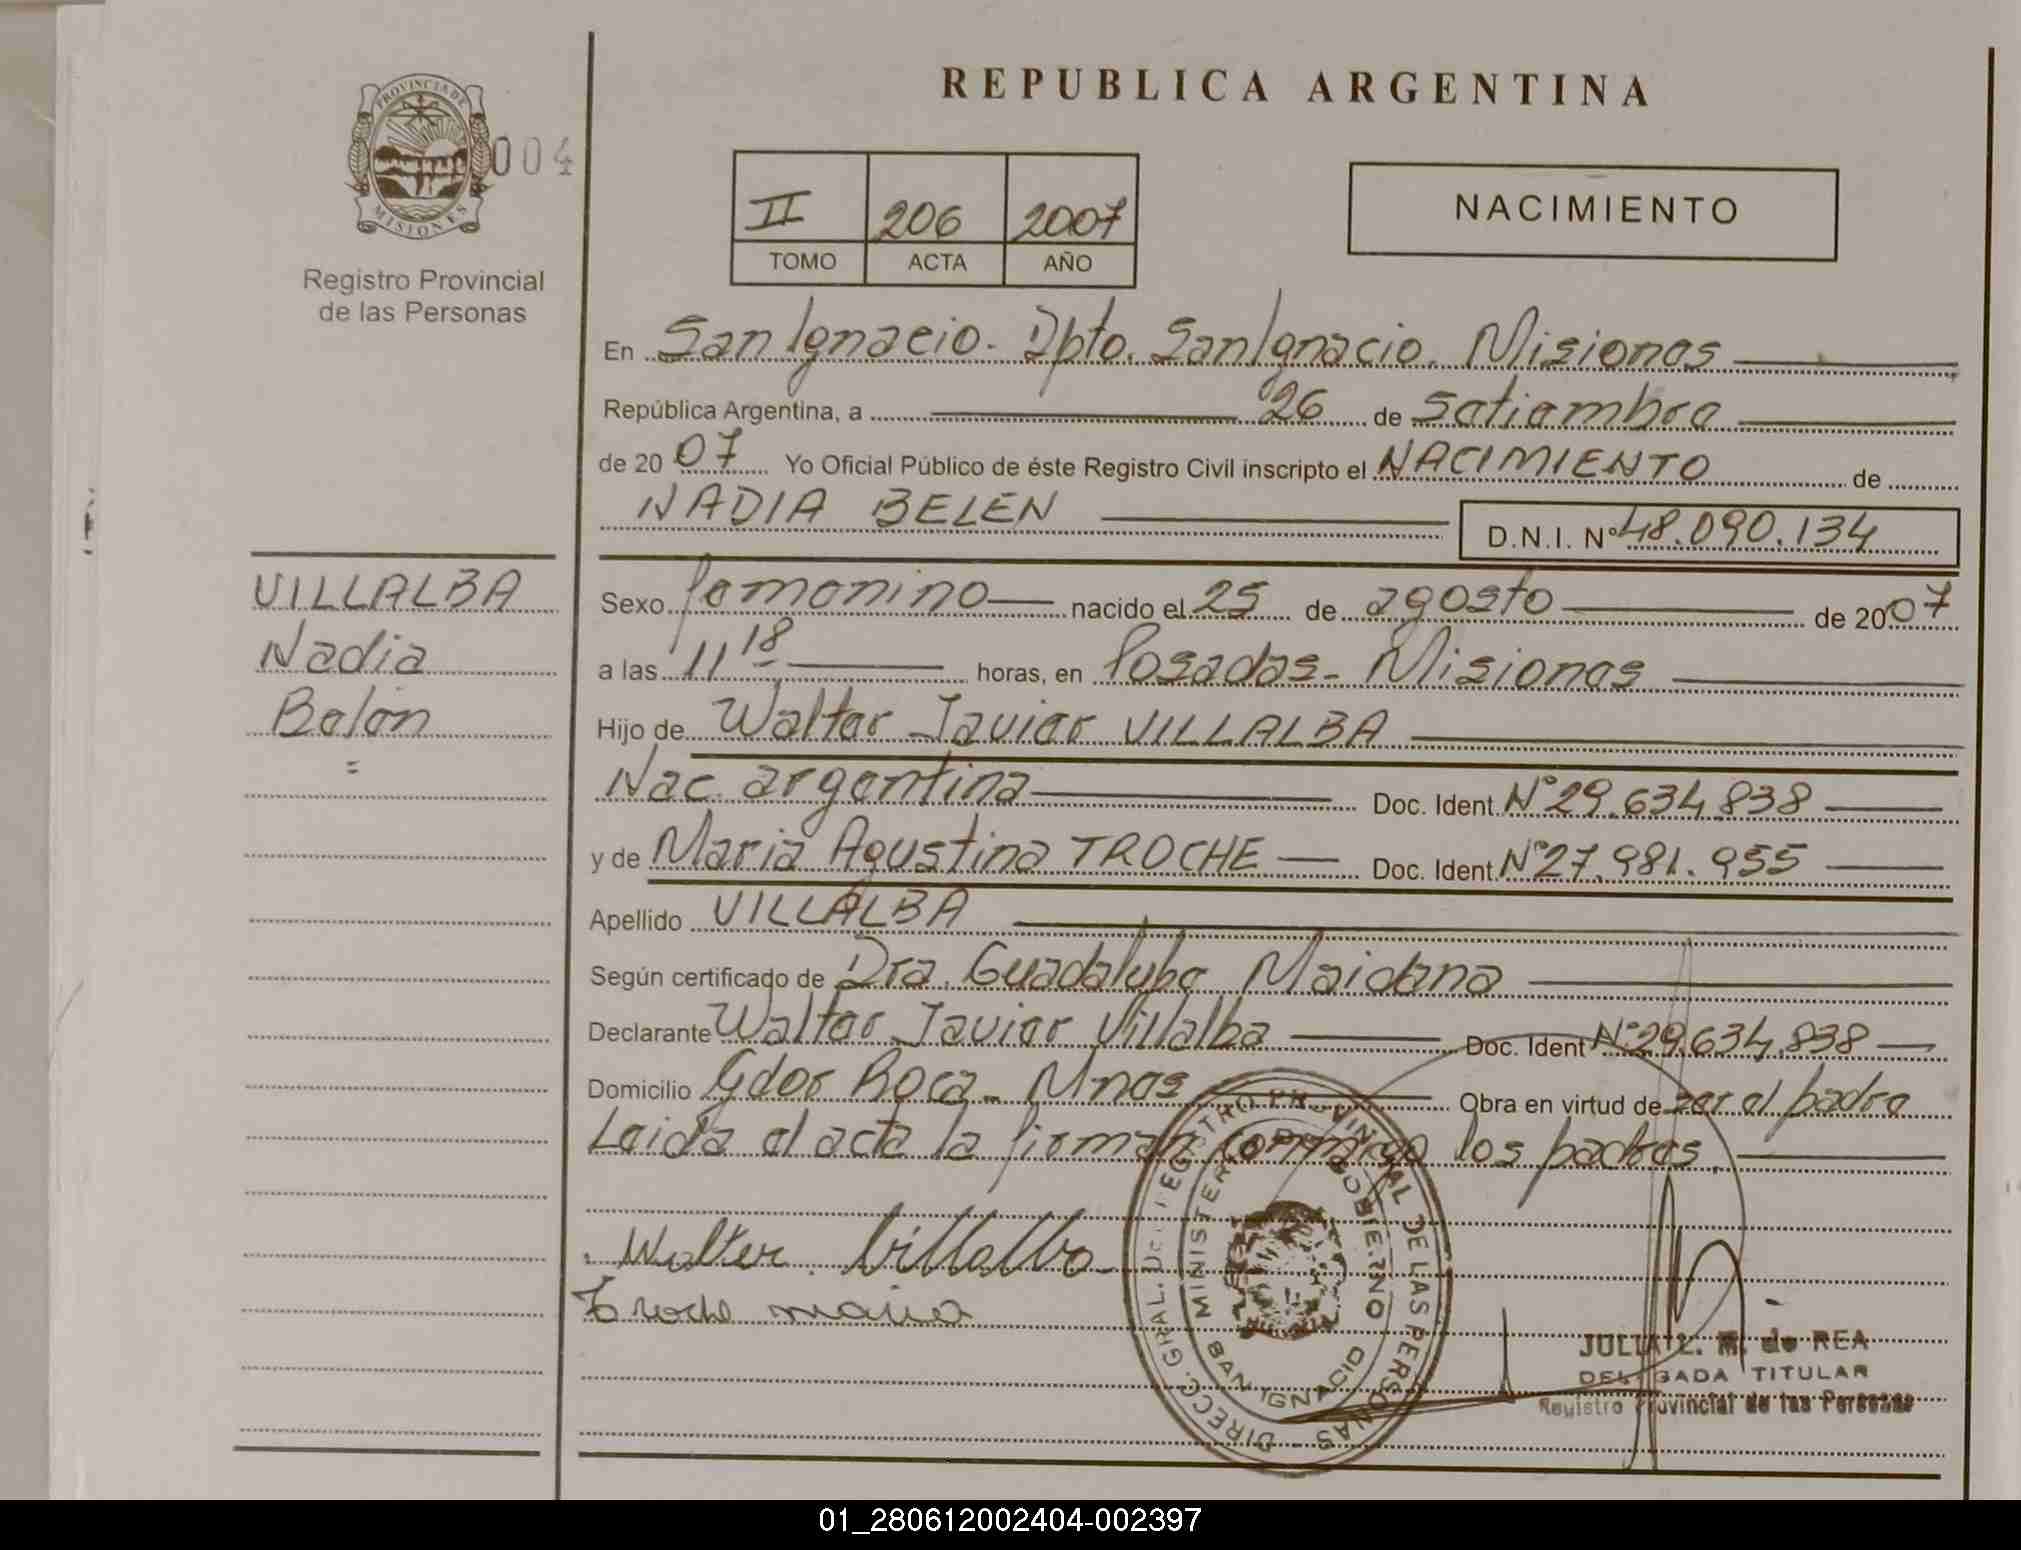 REPUBLICA ARGENTINA
PROVINCIA DE
MISIONES
004
Registro Provincial
de las Personas
II 206 2007
TOMO ACTA AÑO
NACIMIENTO
En San Ignacio. Dpto. San Ignacio. Misiones
República Argentina, a 26 de Setiembre
de 2007 Yo Oficial Público de éste Registro Civil inscripto el NACIMIENTO de
NADIA BELEN
D.N.I. Nº 48.090.134
VILLALBA
Nadia
Belén
Sexo femenino nacido el 25 de agosto de 2007
a las 11 18 horas, en Posadas - Misiones
Hijo de Walter Javier VILLALBA
Nac. argentina Doc. Ident. Nº 29.634.838
y de Maria Agustina TROCHE Doc. Ident. Nº 27.981.955
Apellido VILLALBA
Según certificado de Dra. Guadalupe Maidana
Declarante Walter Javier Villalba Doc. Ident Nº 29.634.838
Domicilio Gdor Roca - Mnes Obra en virtud de ser el padre
Leida el acta la firman conmigo los padres.
Walter Villalba
Troche maria
DIRECC. GRAL. DEL REGISTRO PROVINCIAL DE LAS PERSONAS
MINISTERIO DE GOBIERNO
SAN IGNACIO
JULIA L. M. de REA
DELEGADA TITULAR
Registro Provincial de las Personas
01_280612002404-002397